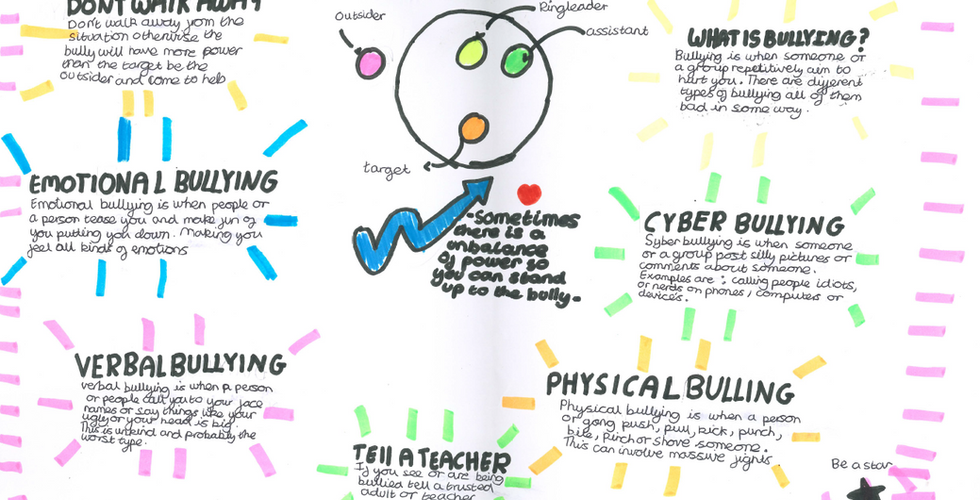 DONT WALK AWAY
Don't walk away from the
situation otherwise the
bully will have more power
than the target be the
outsider and come to help
Outsider
Ringleader
assistant
target
WHAT IS BULLYING?
Bullying is when someone or
a group repetitively aim to
hurt you. There are different
types of bullying all of them
bad in some way.
EMOTIONAL BULLYING
Emotional bullying is when people or
a person tease you and make fun of
you putting you down. Making you
feel all kinds of emotions
-Sometimes
there is a
unbalance
of power so
you can stand
up to the bully-
CYBER BULLYING
Syber bullying is when someone
or a group post silly pictures or
comments about someone.
Examples are : calling people idiots,
or nerds on phones, computers or
device's.
VERBAL BULLYING
verbal bullying is when a person
or people call you to your face
names or say things like your
ugly or your head is big.
This is unkind and probably the
worst type.
PHYSICAL BULLING
Physical bullying is when a person
or gang push, pull, kick, punch,
bite, pinch or shove someone.
This can involve massive fights
TEll A TEACHER
If you see or are being
bullied tell a trusted
adult or teacher
Be a star